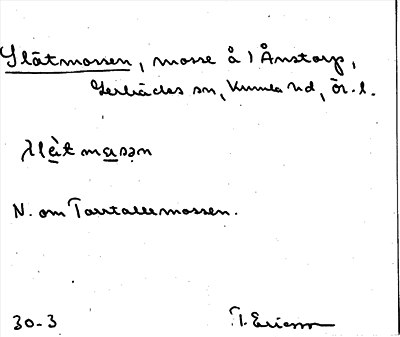 Slätmossen, mosse å 1 Ånstorp,
Gerbäcks sn, Kumla hd, Ör. l.
slètmasən
N. om Tarrtallemossen.
30-3 T. Ericsson